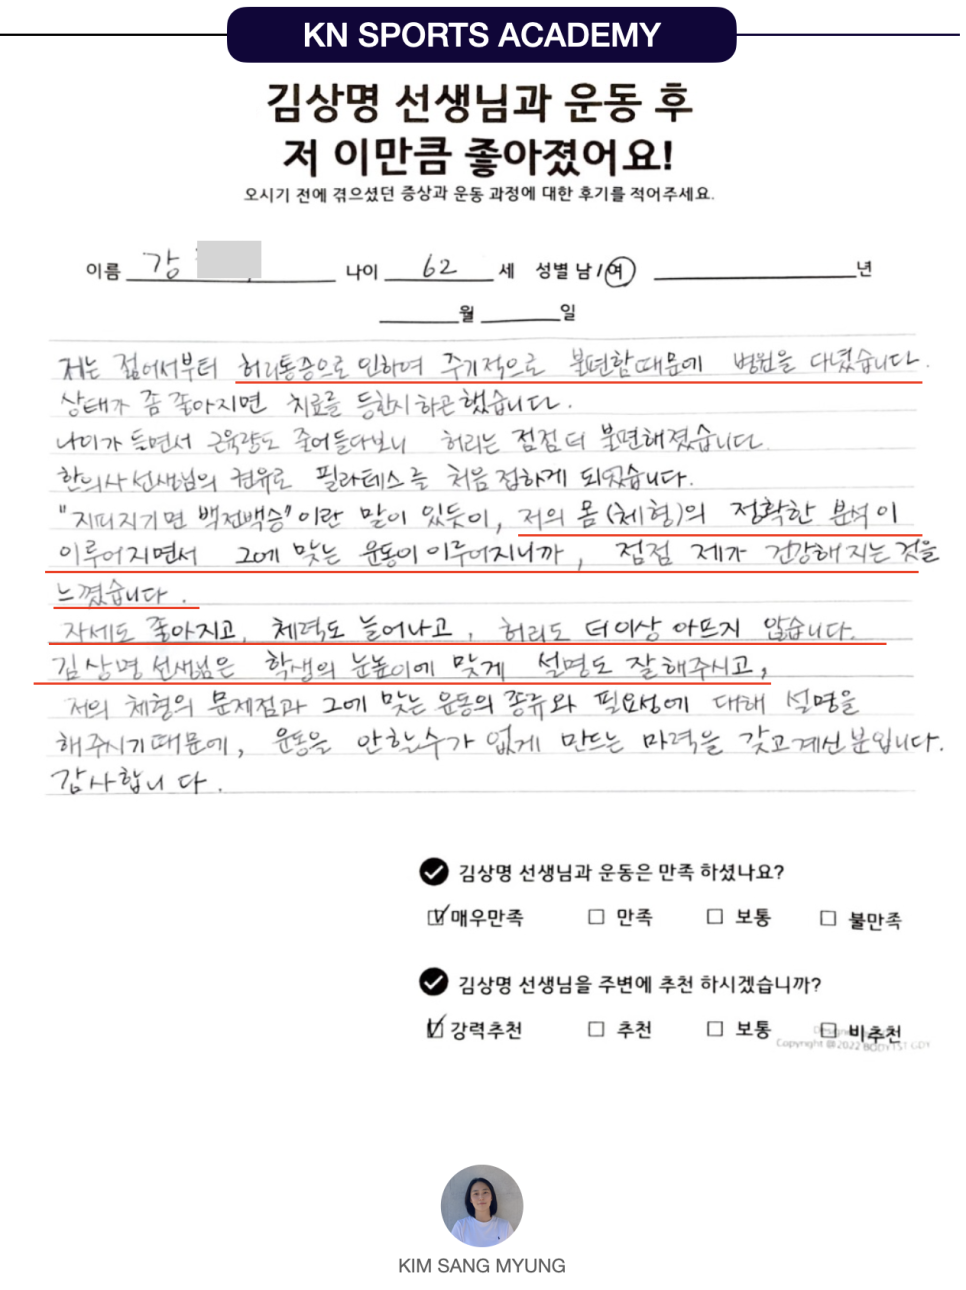 KN SPORTS ACADEMY
김상명 선생님과 운동 후
저 이만큼 좋아졌어요!
오시기 전에 겪으셨던 증상과 운동 과정에 대한 후기를 적어주세요.
이름 강 나이 62 세 성별 남 / 여 년
월 일
저는 젊어서부터 허리통증으로 인하여 주기적으로 불편함때문에 병원을 다녔습니다.
상태가 좀 좋아지면 치료를 등한시 하곤 했습니다.
나이가 들면서 근육량도 줄어들다보니 허리는 점점 더 불편해졌습니다.
한의사 선생님의 권유로 필라테스를 처음 접하게 되었습니다.
"지피지기면 백전백승"이란 말이 있듯이, 저의 몸(체형)의 정확한 분석이
이루어지면서 그에 맞는 운동이 이루어지니까, 점점 제가 건강해지는 것을
느꼈습니다.
자세도 좋아지고, 체력도 늘어나고, 허리도 더이상 아프지 않습니다.
김상명 선생님은 학생의 눈높이에 맞게 설명도 잘해주시고,
저의 체형의 문제점과 그에 맞는 운동의 종류와 필요성에 대해 설명을
해주시기때문에, 운동을 안할수가 없게 만드는 마력을 갖고계신분입니다.
감사합니다.
김상명 선생님과 운동은 만족 하셨나요?
매우만족 만족 보통 불만족
김상명 선생님을 주변에 추천 하시겠습니까?
강력추천 추천 보통 비추천
Copyright @2022 BODY1ST GDY
KIM SANG MYUNG